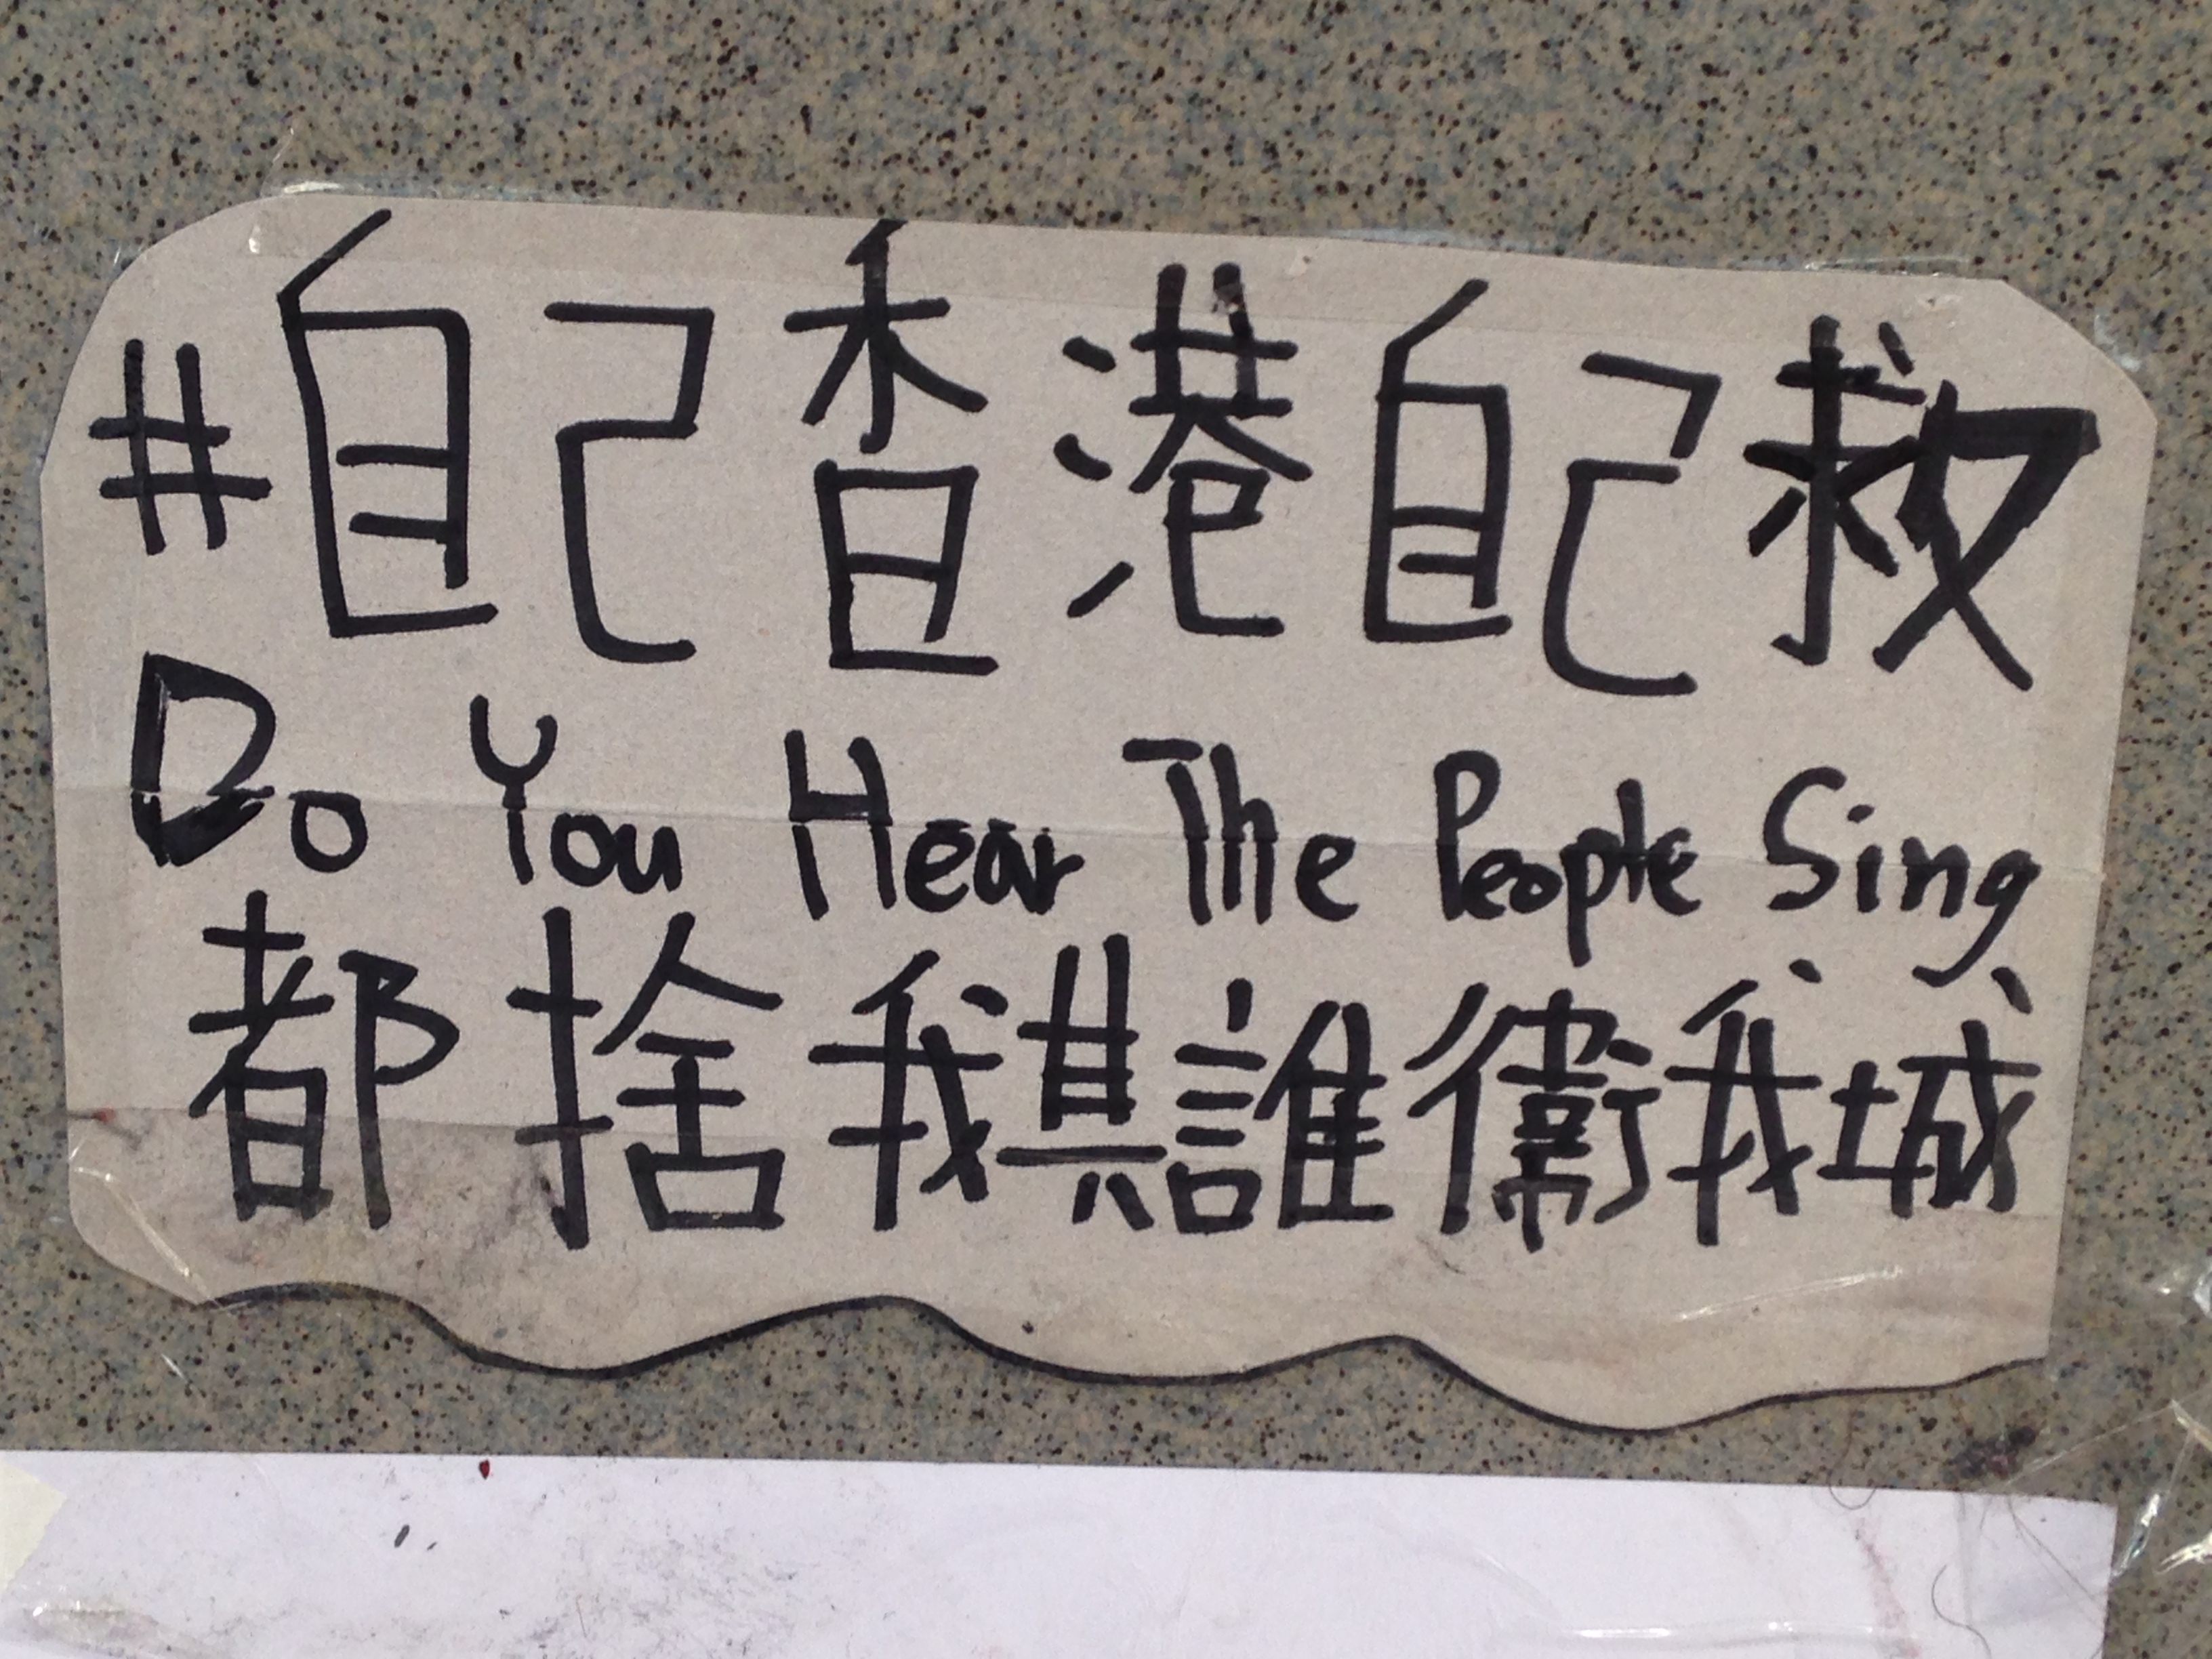 #自己香港自己救
Do You Hear The People Sing
都捨我其誰衛我城